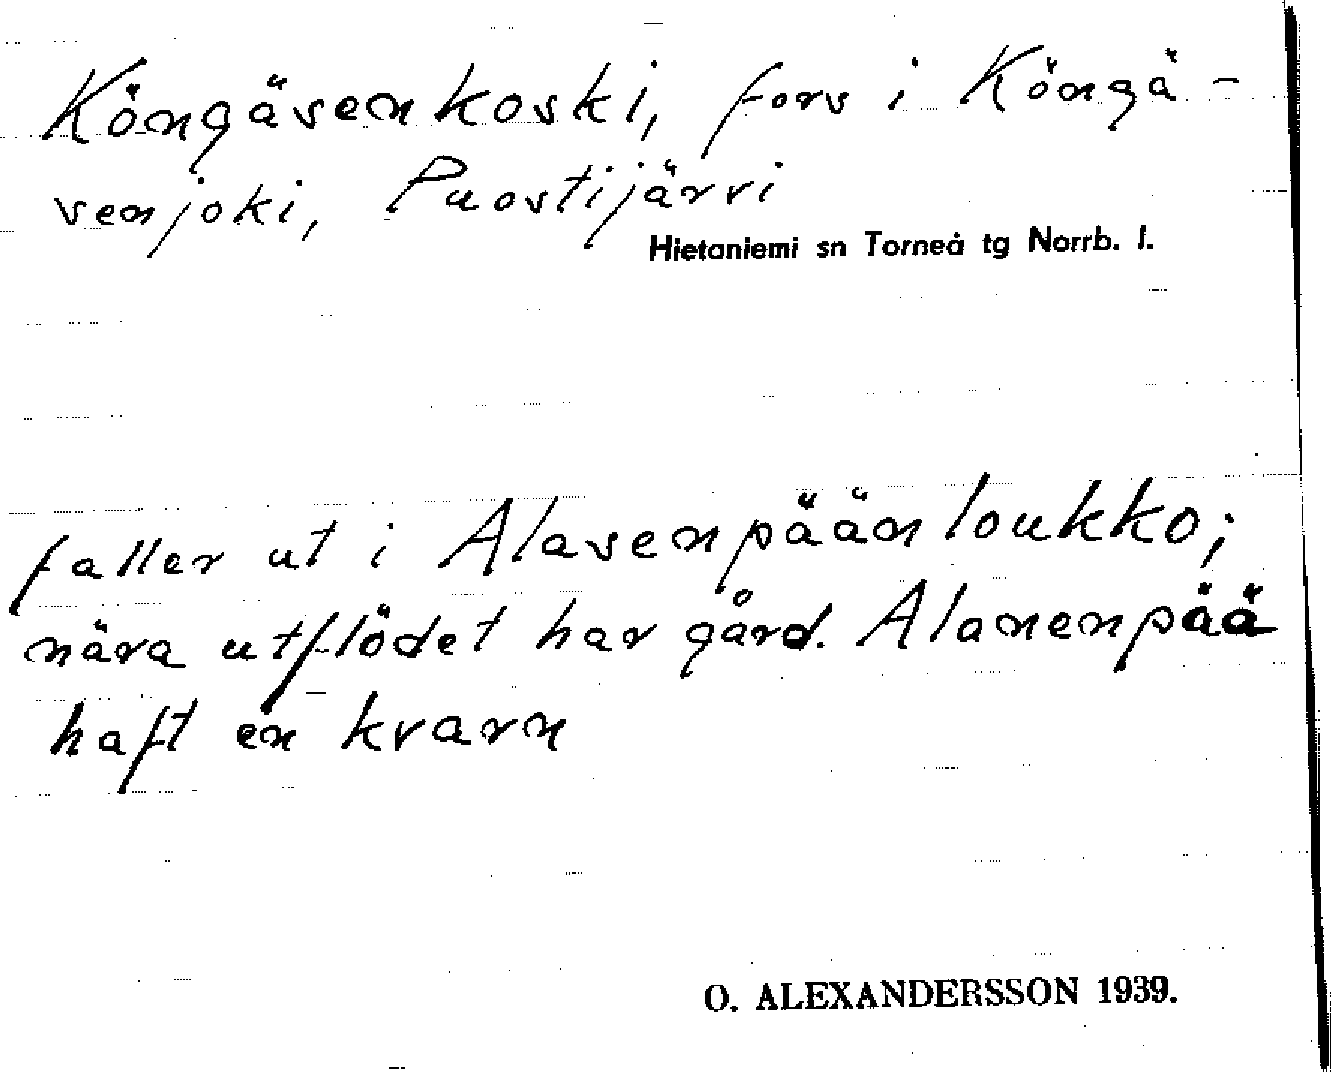 Köngäsenkoski, fors i Köngä-
senjoki, Puostijärvi
Hietaniemi sn Torneå tg Norrb. l.
faller ut i Alasenpäänloukko;
nära utflödet har gård. Alanenpää
haft en kvarn
O. ALEXANDERSSON 1939.